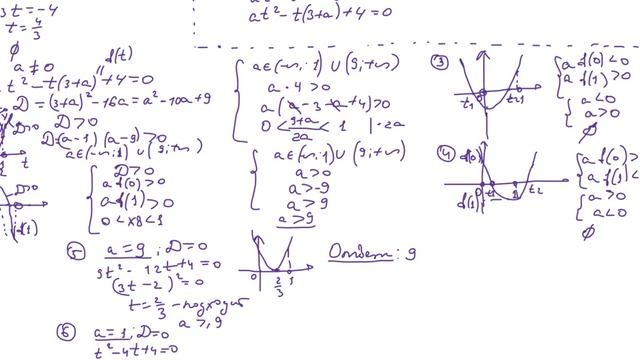 3t = -4
t = 4/3
∅
at² - t(3+a) + 4 = 0
a ≠ 0
f(t)
t² - t(3+a) + 4 = 0
D = (3+a)² - 16a = a² - 10a + 9
D > 0
D = (a-1)(a-9) > 0
a∈(-∞;1) ∪ (9;+∞)
D > 0
a f(0) > 0
a f(1) > 0
0 < x₈ < 1
a∈(-∞;1) ∪ (9;+∞)
a · 4 > 0
a(a - 3 - a + 4) > 0
0 < (9+a)/2a < 1 | · 2a
a∈(-∞;1) ∪ (9;+∞)
a > 0
a > -9
a > 9
a > 9
③ a f(0) < 0
a f(1) > 0
a < 0
a > 0
∅
t₁
④ f(0)
f(1)
t₁
t₂
a f(0) >
a f(1) <
a > 0
a < 0
∅
D>0
t
D>0
f(1)
⑤ a = 9; D = 0
9t² - 12t + 4 = 0
(3t - 2)² = 0
t = 2/3 - подходит
a ≥ 9
0 2/3 1
Ответ: 9
⑥ a = 1; D = 0
t² - 4t + 4 = 0